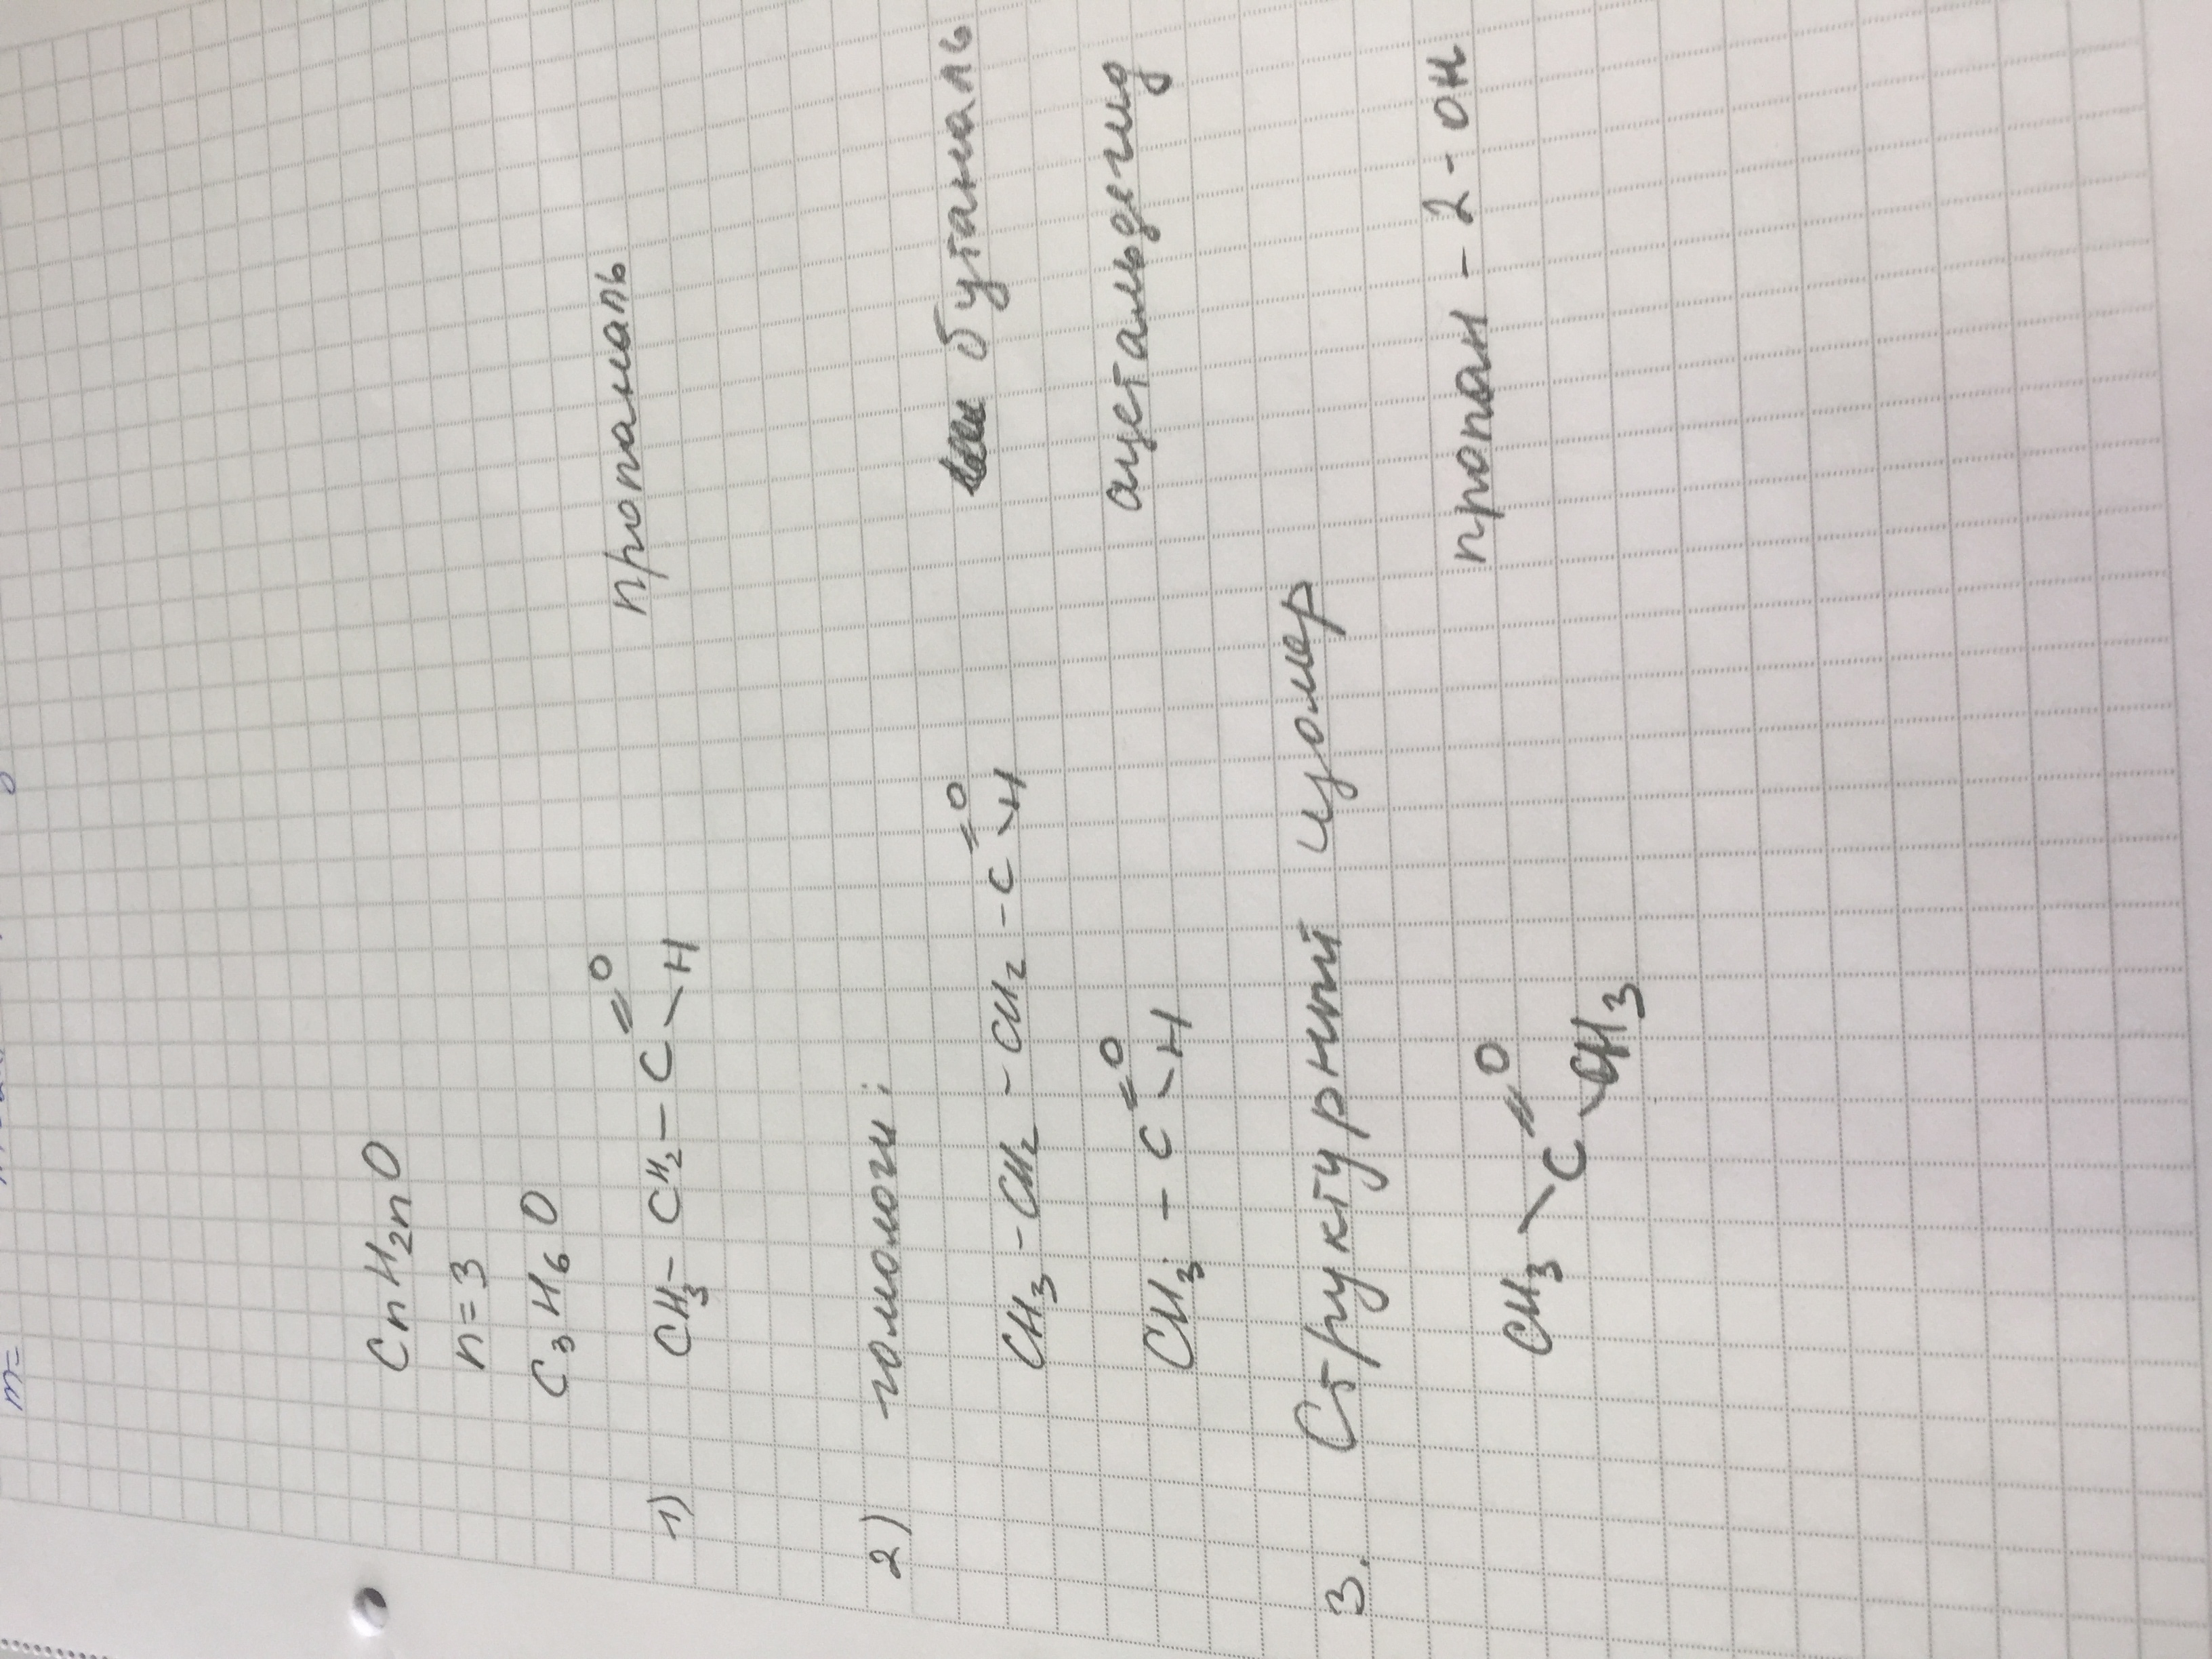 m=
CnH2nO
n=3
C3H6O
1) CH3-CH2-C=O-H пропаналь
2) гомологи:
CH3-CH2-CH2-C=O-H бутаналь
CH3-C=O-H ацетальдегид
3. Структурный изомер
CH3-C=O-CH3 пропан-2-он